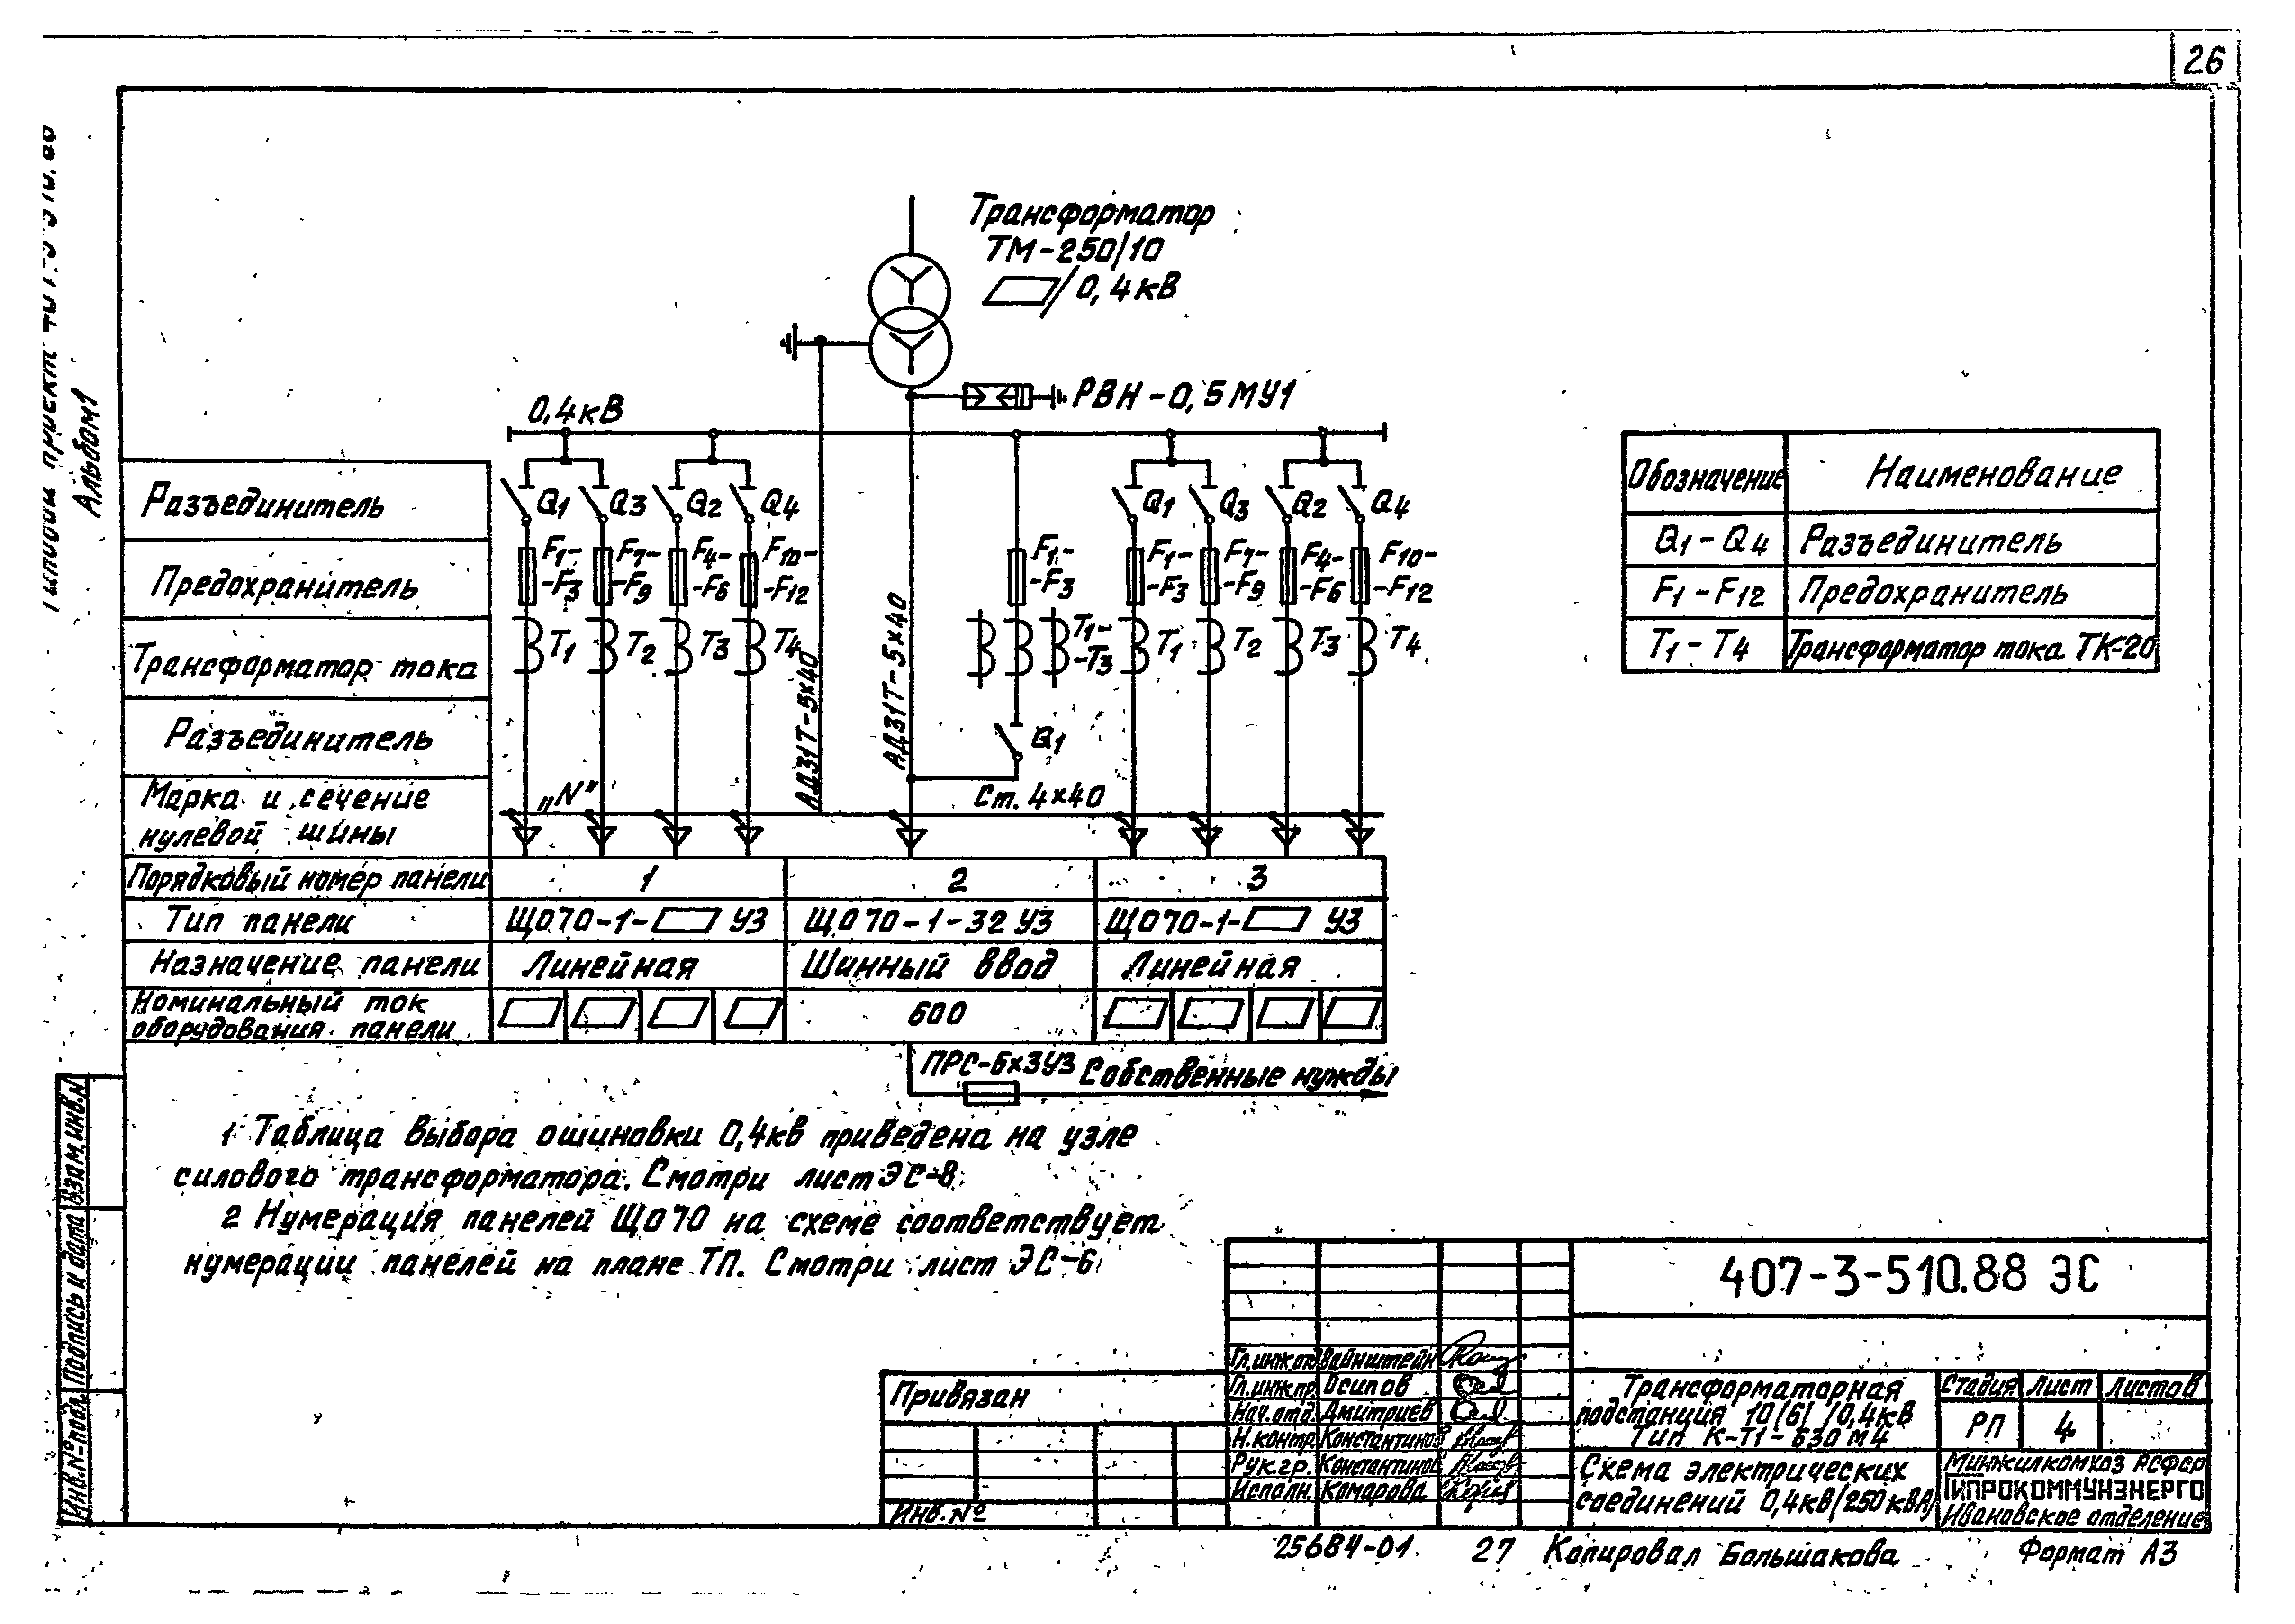 26
Альбом 1
Трансформатор
ТМ-250/10
/0,4кВ
РВН-0,5МУ1
0,4кВ
Разъединитель
Q1 Q3 Q2 Q4 Q1 Q3 Q2 Q4
Предохранитель
F1-
-F3
F7-
-F9
F4-
-F6
F10-
-F12
F1-
-F3
F1-
-F3
F7-
-F9
F4-
-F6
F10-
-F12
Трансформатор тока
T1 T2 T3 T4
T1-
-T3
T1 T2 T3 T4
Разъединитель
Q1
АД31Т-5х40
АД31Т-5х40
Марка и сечение
нулевой шины
„N”
Ст. 4х40
Порядковый номер панели 1 2 3
Тип панели ЩО70-1- У3 ЩО70-1-32 У3 ЩО70-1- У3
Назначение панели Линейная Шинный ввод Линейная
Номинальный ток
оборудования панели
600
ПРС-6х3У3 Собственные нужды
Обозначение Наименование
Q1-Q4 Разъединитель
F1-F12 Предохранитель
T1-T4 Трансформатор тока ТК-20
1 Таблица выбора ошиновки 0,4кв приведена на узле
силового трансформатора. Смотри лист ЭС-8
2 Нумерация панелей ЩО70 на схеме соответствует
нумерации панелей на плане ТП. Смотри лист ЭС-6
Инв.№подл. Подпись и дата Взам.инв.N
Привязан
Инв.№
407-3-510.88 ЭС
Гл.инж.отд Вайнштейн
Гл.инж.пр. Осипов
Нач.отд. Дмитриев
Н.контр. Константинов
Рук.гр. Константинов
Исполн. Комарова
Трансформаторная
подстанция 10(6)/0,4кВ
Тип К-Т1-630 М4
Стадия Лист Листов
РП 4
Схема электрических
соединений 0,4кв/250кВА
Минжилкомхоз РСФСР
ГИПРОКОММУНЭНЕРГО
Ивановское отделение
25684-01 27 Копировал Большакова Формат А3